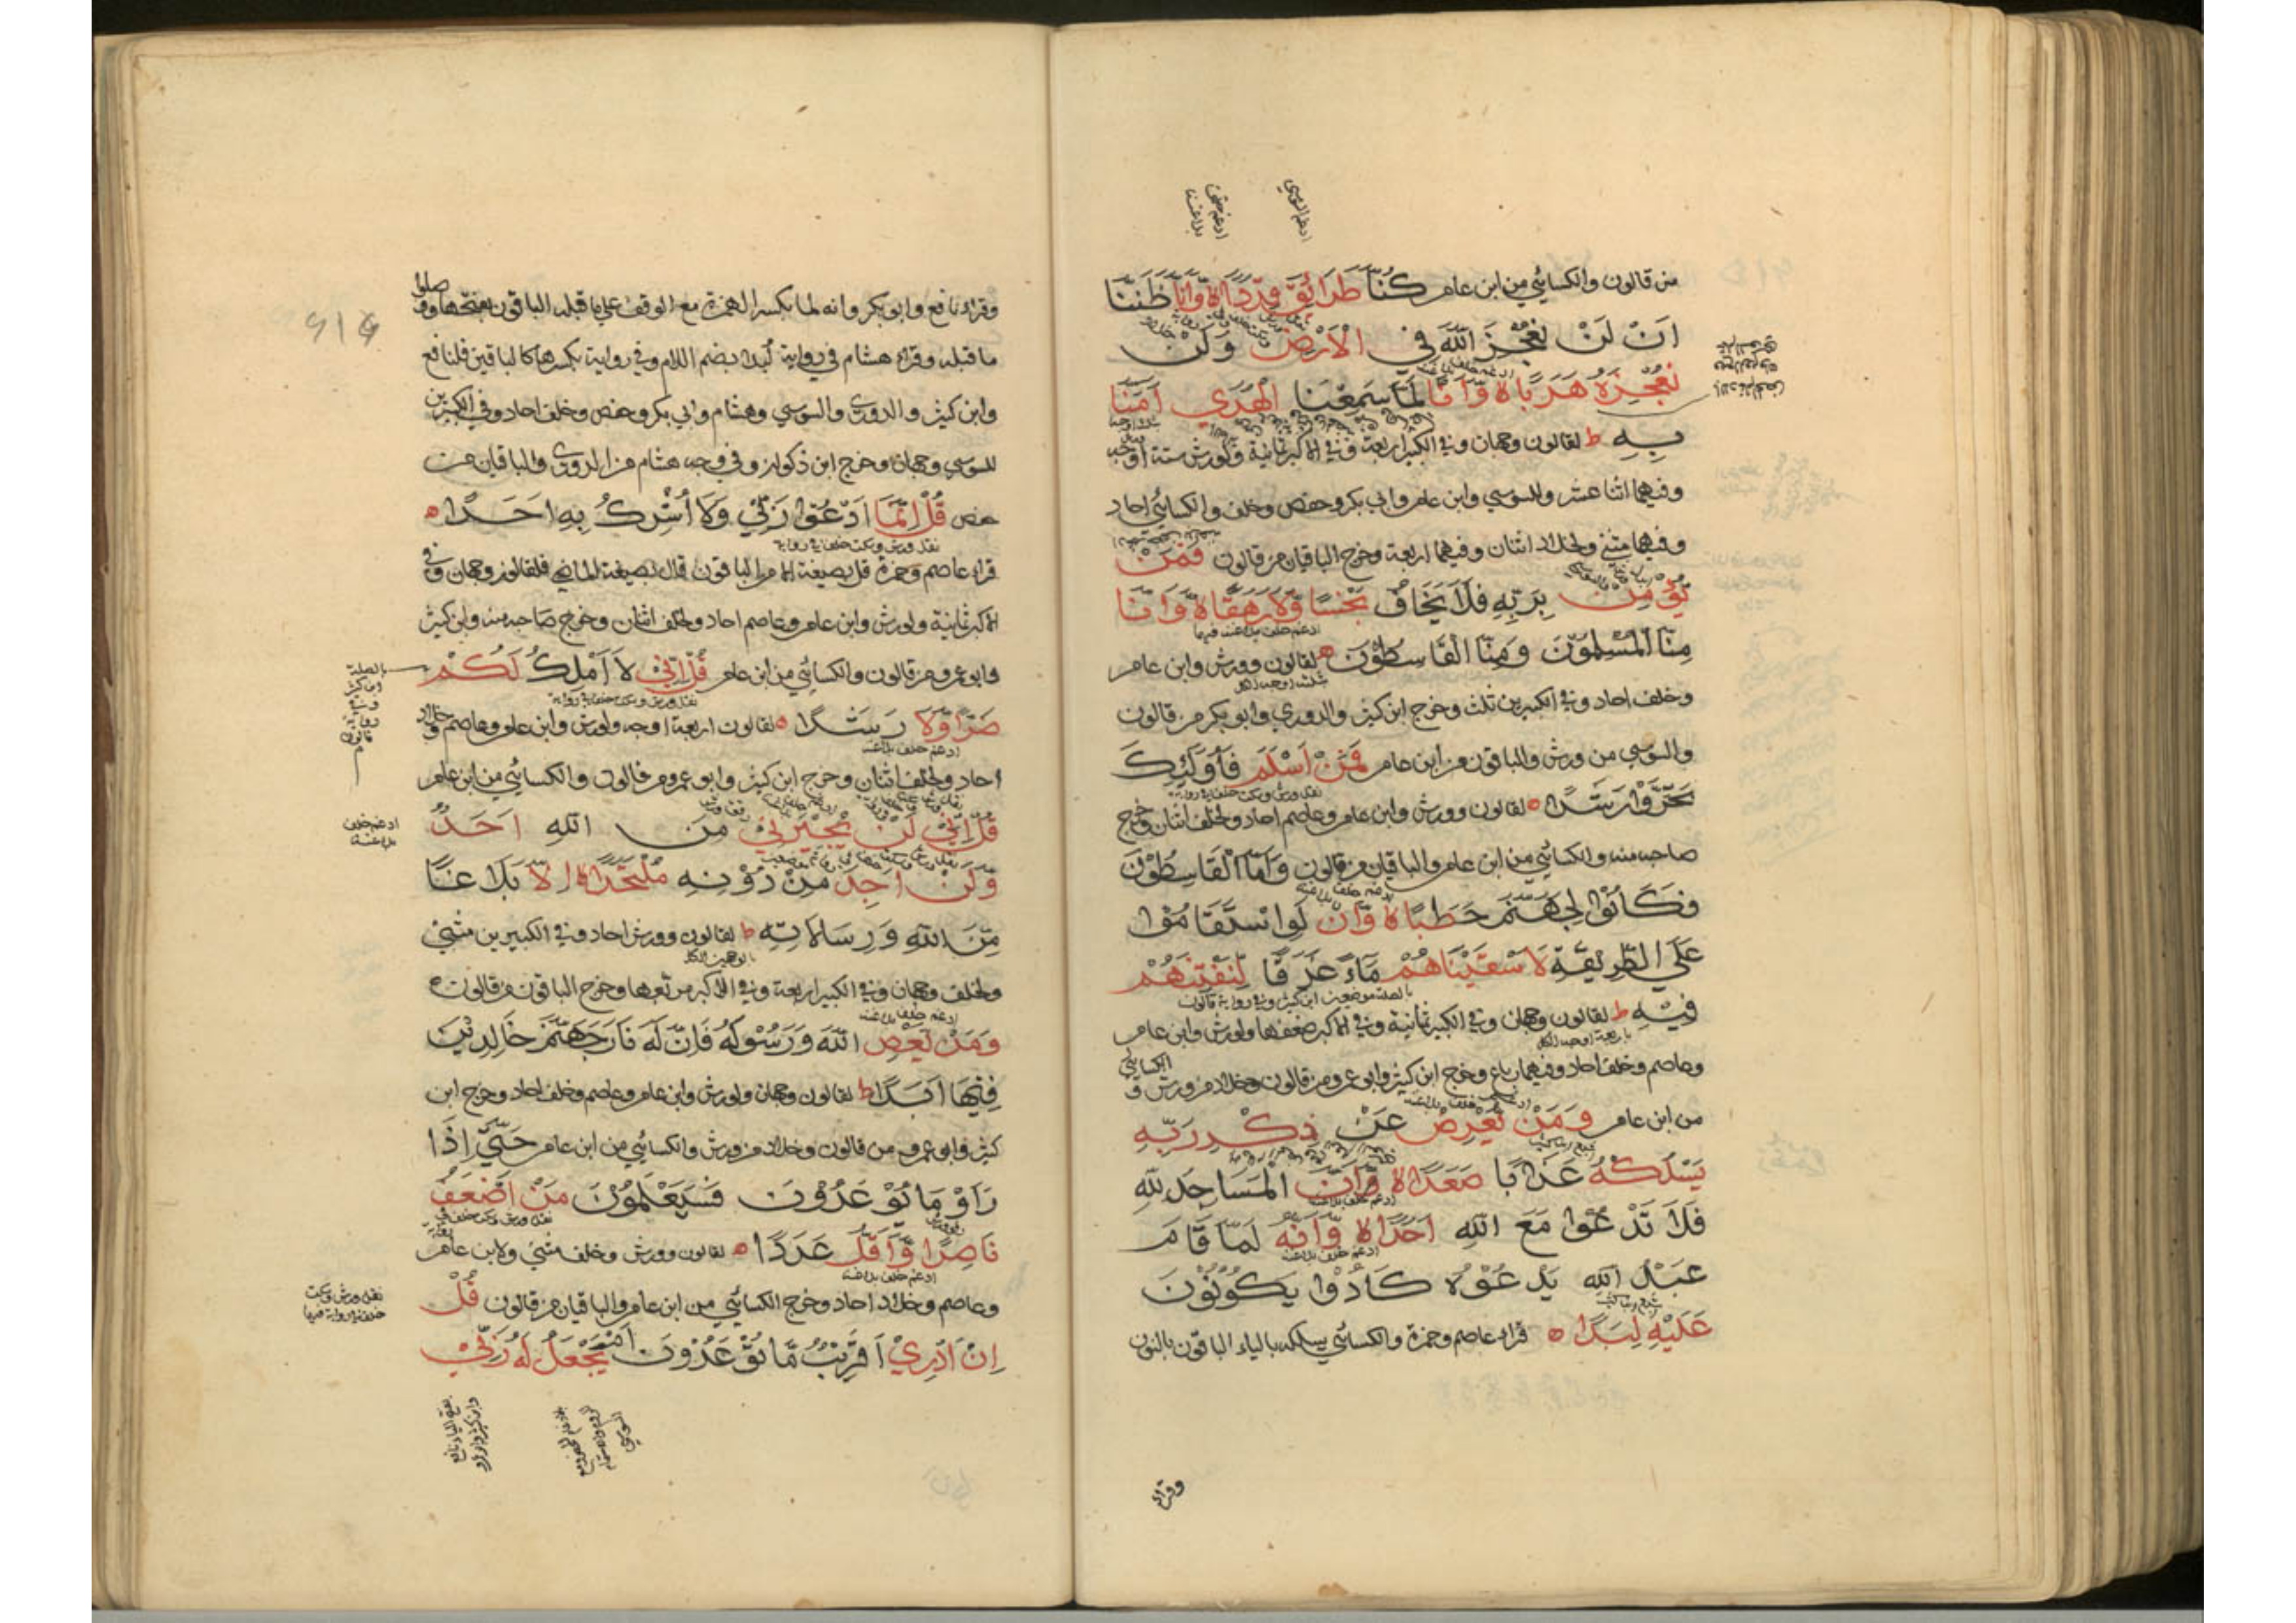 من قالون والكسائي من ابن عامر كُنَّا طَرَائِقَ قِدَدًا ه وَّاَنَّا ظَنَنَّا
اَنْ لَنْ نُعْجِزَ اللّٰهَ فِي الْاَرْضِ وَلَنْ
نُعْجِزَهُ هَرَبًا ه وَّاَنَّا لَمَّا سَمِعْنَا الْهُدَي آمَنَّا
بِهِ ط لقالون وجهان وفي الكبير اربعة وفي الاكبر ثمانية ولورش ستة اوجه
وفيهما اثنا عشر وللسوسي وابن عامر وابي بكر وحفص وخلف والكسائي احاد
وفيهما مثني ولخلاد اثنان وفيهما اربعة وخرج الباقيان من قالون فَمَنْ
يُّؤْمِنْ بِرَبِّهِ فَلَا يَخَافُ بَخْسًا وَّلَا رَهَقًا ه وَّاَنَّا
مِنَّا الْمُسْلِمُوْنَ وَمِنَّا الْقَاسِطُوْنَ ه لقالون وورش وابن عامر
وخلف احاد وفي الكبيرين ثلث وخرج ابن كثير والدوري وابو بكر من قالون
والسوسي من ورش والباقون من ابن عامر فَمَنْ اَسْلَمَ فَاُولٰئِكَ
تَحَرَّوْا رَشَدًا ه لقالون وورش وابن عامر وعاصم احاد ولخلف اثنان وخرج
صاحبه منه والكسائي من ابن عامر والباقيان من قالون وَاَمَّا الْقَاسِطُوْنَ
فَكَانُوْا لِجَهَنَّمَ حَطَبًا ه وَّاَنْ لَوِ اسْتَقَامُوْا
عَلَي الطَّرِيْقَةِ لَاَسْقَيْنَاهُمْ مَاءً غَدَقًا لِنَفْتِنَهُمْ
فِيْهِ ط لقالون وجهان وفي الكبير ثمانية وفي الاكبر ضعفها ولورش وابن عامر
وعاصم وخلف احاد وفيهما رباع وخرج ابن كثير وابو عمرو من قالون وخلاد من ورش و الكسائي
من ابن عامر وَمَنْ يُّعْرِضْ عَنْ ذِكْرِ رَبِّهِ
يَسْلُكْهُ عَذَابًا صَعَدًا ه وَّاَنَّ الْمَسَاجِدَ لِلّٰهِ
فَلَا تَدْعُوْا مَعَ اللّٰهِ اَحَدًا ه وَّاَنَّهُ لَمَّا قَامَ
عَبْدُ اللّٰهِ يَدْعُوْهُ كَادُوْا يَكُوْنُوْنَ
عَلَيْهِ لِبَدًا ه قراء عاصم وحمزة والكسائي يسلكه بالياء الباقون بالنون
وقراء
وقراء نافع وابو بكر وانه لما بكسر الهمزة مع الوقف علي ما قبله الباقون بفتحها ووصلوا
ما قبله وقراء هشام في رواية لبدا بضم اللام وفي رواية بكسرها كالباقين فلنافع
وابن كثير والدوري والسوسي وهشام وابي بكر وحفص وخلف احاد وفي الكبيرين
للسوسي وجهان وخرج ابن ذكوان وفي وجه هشام من الدوري والباقيان من
حفص قُلْ اِنَّمَا اَدْعُوْا رَبِّيْ وَلَا اُشْرِكُ بِهِ اَحَدًا ه
قراء عاصم وحمزة قل بصيغة الامر الباقون قال بصيغة الماضي فلقالون وجهان وفي
الاكبر ثمانية ولورش وابن عامر وعاصم احاد ولخلف اثنان وخرج صاحبه منه وابن كثير
وابو عمرو من قالون والكسائي من ابن عامر قُلْ اِنِّيْ لَا اَمْلِكُ لَكُمْ
ضَرًّا وَّلَا رَشَدًا ه لقالون اربعة اوجه ولورش وابن عامر وعاصم وخلاد
احاد ولخلف اثنان وخرج ابن كثير وابو عمرو من قالون والكسائي من ابن عامر
قُلْ اِنِّيْ لَنْ يُّجِيْرَنِيْ مِنَ اللّٰهِ اَحَدٌ
وَّلَنْ اَجِدَ مِنْ دُوْنِهِ مُلْتَحَدًا ه اِلَّا بَلَاغًا
مِّنَ اللّٰهِ وَرِسَالَاتِهِ ط لقالون وورش احاد وفي الكبيرين مثني
ولخلف وجهان وفي الكبير اربعة وفي الاكبر مربعها وخرج الباقون من قالون ه
وَمَنْ يَّعْصِ اللّٰهَ وَرَسُوْلَهُ فَاِنَّ لَهُ نَارَ جَهَنَّمَ خَالِدِيْنَ
فِيْهَا اَبَدًا ط لقالون وجهان ولورش وابن عامر وعاصم وخلف احاد وخرج ابن
كثير وابو عمرو من قالون وخلاد من ورش والكسائي من ابن عامر حَتّٰي اِذَا
رَاَوْ مَا يُوْعَدُوْنَ فَسَيَعْلَمُوْنَ مَنْ اَضْعَفُ
نَاصِرًا وَّاَقَلُّ عَدَدًا ه لقالون وورش وخلف مثني ولابن عامر
وعاصم وخلاد احاد وخرج الكسائي من ابن عامر والباقيان من قالون قُلْ
اِنْ اَدْرِيْ اَقَرِيْبٌ مَّا تُوْعَدُوْنَ اَمْ يَجْعَلُ لَهُ رَبِّيْ